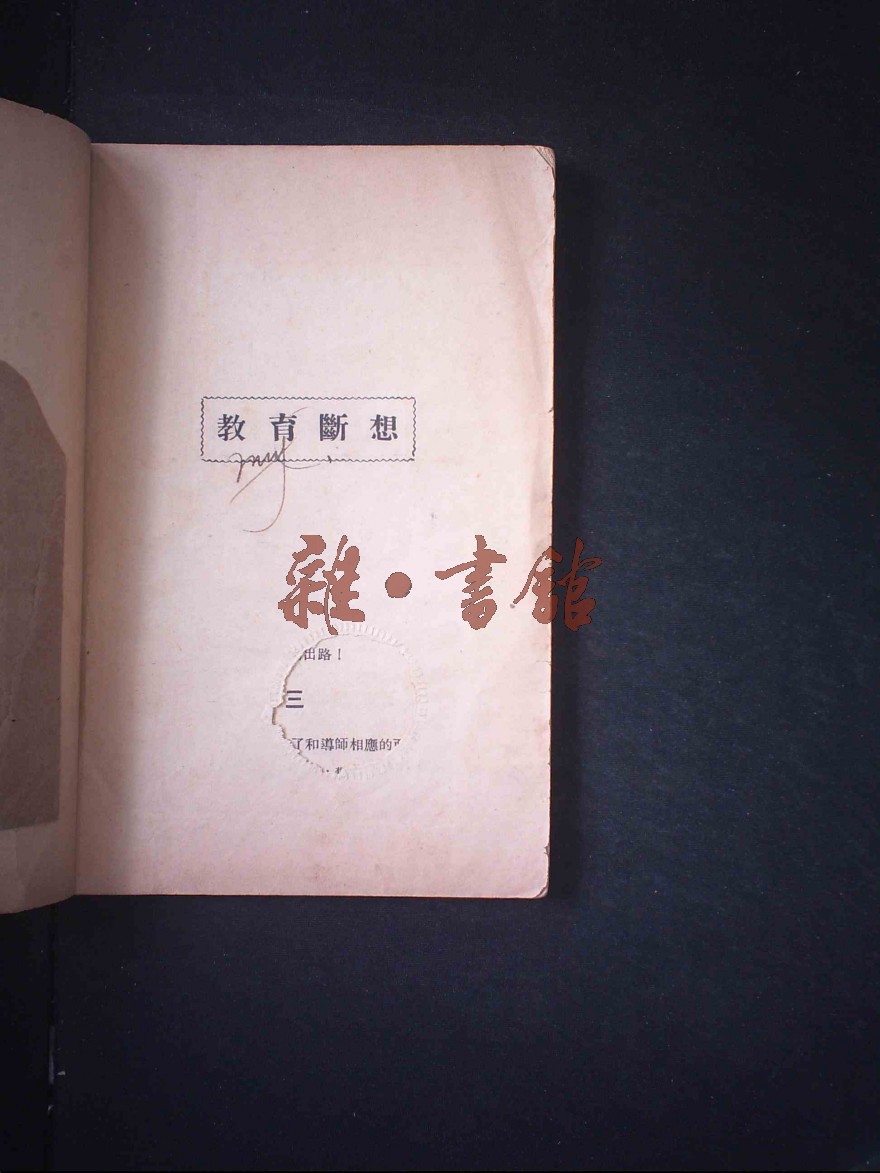 教育斷想
雜·書館
出路！
三
了和導師相應的